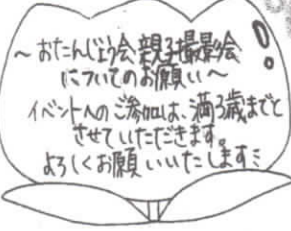 ～おたんじょう会 親子撮影会
についてのお願い～
イベントへのご参加は、満3歳までと
させていただきます。
よろしくお願いいたします